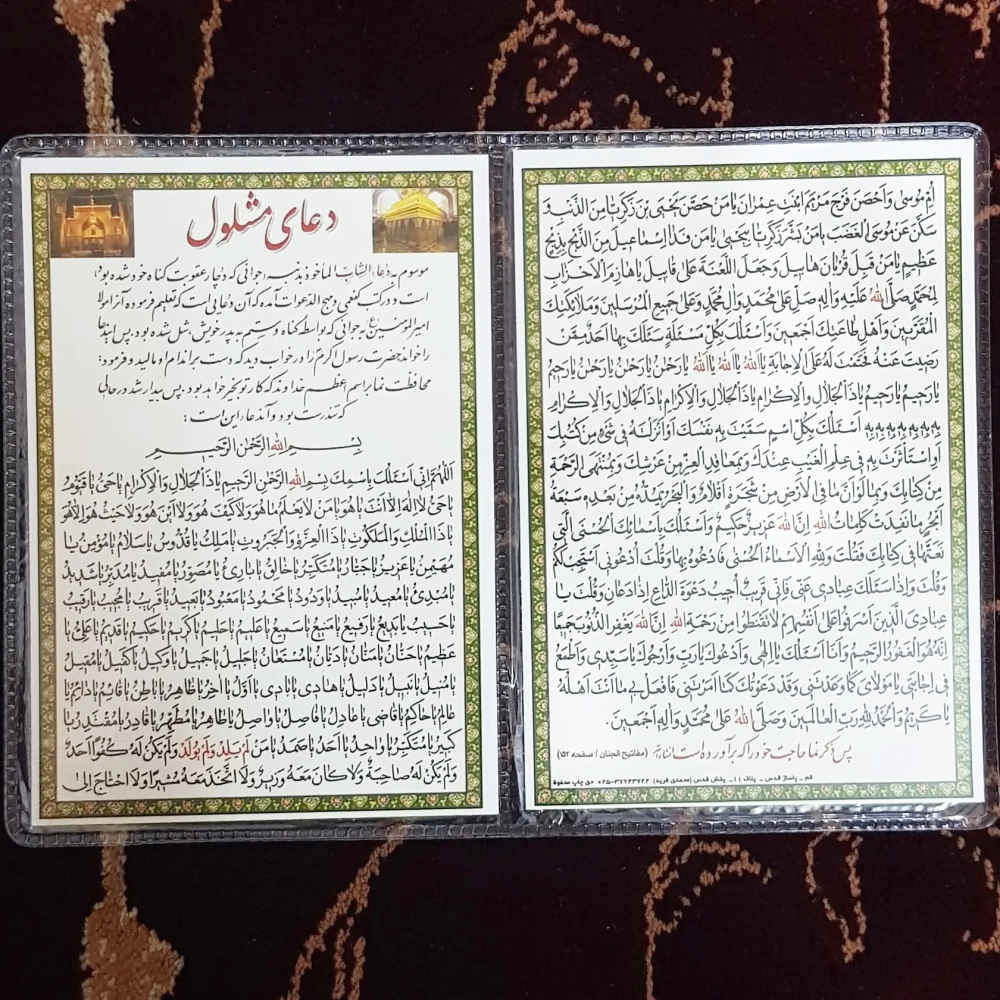 دعای مشلول
موسوم به دُعاءُ الشّابِّ المأخوذِ بذنبِه [جوانی که دچار عقوبت گناه خود شده بود]
است و در کتب کفعمی و مهج الدعوات آمده که آن دعایی است که تعلیم فرموده آنرا مولا
امیرالمؤمنین(ع) به جوانی که بواسطه گناه و ستم به پدر خویش، شل شده بود پس این دعا
را خواند حضرت رسول اکرم(ص) را در خواب دید که دست بر اندام او مالید و فرمود:
محافظت نما بر اسم عظم خداوند که کار تو بخیر خواهد بود، پس بیدار شد در حالی
که تندرست بود و آن دعا، این است:
بِسْمِ اللهِ الرَّحْمٰنِ الرَّحیمِ
اَللّٰهُمَّ اِنّی اَسْئَلُكَ بِاسْمِكَ بِسْمِ اللهِ الرَّحْمٰنِ الرَّحیمِ یا ذَا الْجَلالِ وَالْاِكْرامِ یا حَیُّ یا قَیُّومُ
یا حَیُّ لا اِلٰهَ اِلّا اَنْتَ یا هُوَ یا مَنْ لا یَعْلَمُ ما هُوَ وَلا كَیْفَ هُوَ وَلا اَیْنَ هُوَ وَلا حَیْثُ هُوَ اِلّا هُوَ
یا ذَا الْمُلْكِ وَالْمَلَكُوتِ یا ذَا الْعِزَّةِ وَالْجَبَرُوتِ یا مَلِكُ یا قُدُّوسُ یا سَلامُ یا مُؤْمِنُ یا
مُهَیْمِنُ یا عَزیزُ یا جَبّارُ یا مُتَكَبِّرُ یا خالِقُ یا بارِئُ یا مُصَوِّرُ یا مُفیدُ یا مُدَبِّرُ یا شَدیدُ
یا مُبْدِئُ یا مُعیدُ یا مُبیدُ یا وَدُودُ یا مَحْمُودُ یا مَعْبُودُ یا بَعیدُ یا قَریبُ یا مُجیبُ یا رَقیبُ
یا حَسیبُ یا بَدیعُ یا رَفیعُ یا مَنیعُ یا سَمیعُ یا عَلیمُ یا حَلیمُ یا كَریمُ یا حَكیمُ یا قَدیمُ یا عَلِیُّ یا
عَظیمُ یا حَنّانُ یا مَنّانُ یا دَیّانُ یا مُسْتَعانُ یا جَلیلُ یا جَمیلُ یا وَكیلُ یا كَفیلُ یا مُقیلُ
یا مُنیلُ یا نَبیلُ یا دَلیلُ یا هادی یا بادی یا اَوَّلُ یا اٰخِرُ یا ظاهِرُ یا باطِنُ یا قائِمُ یا دائِمُ یا
عالِمُ یا حاكِمُ یا قاضی یا عادِلُ یا فاصِلُ یا واصِلُ یا طاهِرُ یا مُطَهِّرُ یا قادِرُ یا مُقْتَدِرُ یا
كَبیرُ یا مُتَكَبِّرُ یا واحِدُ یا اَحَدُ یا صَمَدُ یا مَنْ لَمْ یَلِدْ وَلَمْ یُولَدْ وَلَمْ یَكُنْ لَهُ كُفُوًا اَحَدٌ
وَلَمْ یَكُنْ لَهُ صاحِبَةٌ وَلا كانَ مَعَهُ وَزیرٌ وَلَا اتَّخَذَ مَعَهُ مُشیرًا وَلَا احْتاجَ اِلیٰ
اُمِّ مُوسیٰ وَاَحْصَنَ فَرْجَ مَرْیَمَ ابْنَتِ عِمْرانَ یا مَنْ حَصَّنَ یَحْیَی بْنَ زَكَرِیّا مِنَ الذَّنْبِ وَ
سَكَّنَ عَنْ مُوسَی الْغَضَبَ یا مَنْ بَشَّرَ زَكَرِیّا بِیَحْییٰ یا مَنْ فَدا اِسْماعیلَ مِنَ الذَّبْحِ بِذِبْحٍ
عَظیمٍ یا مَنْ قَبِلَ قُرْبانَ هابیلَ وَجَعَلَ اللَّعْنَةَ عَلیٰ قابیلَ یا هازِمَ الْاَحْزابِ
لِمُحَمَّدٍ صَلَّی اللهُ عَلَیْهِ وَاٰلِهِ صَلِّ عَلیٰ مُحَمَّدٍ وَاٰلِ مُحَمَّدٍ وَعَلیٰ جَمیعِ الْمُرْسَلینَ وَمَلائِكَتِكَ
الْمُقَرَّبینَ وَاَهْلِ طاعَتِكَ اَجْمَعینَ وَاَسْئَلُكَ بِكُلِّ مَسْئَلَةٍ سَئَلَكَ بِها اَحَدٌ مِمَّنْ
رَضیتَ عَنْهُ فَحَتَمْتَ لَهُ عَلَی الْاِجابَةِ یا اَللهُ یا اَللهُ یا اَللهُ یا رَحْمٰنُ یا رَحْمٰنُ یا رَحْمٰنُ یا رَحیمُ
یا رَحیمُ یا رَحیمُ یا ذَا الْجَلالِ وَالْاِكْرامِ یا ذَا الْجَلالِ وَالْاِكْرامِ یا ذَا الْجَلالِ وَالْاِكْرامِ
بِهِ بِهِ بِهِ بِهِ بِهِ بِهِ بِهِ اَسْئَلُكَ بِكُلِّ اسْمٍ سَمَّیْتَ بِهِ نَفْسَكَ اَوْ اَنْزَلْتَهُ فی شَیْءٍ مِنْ كُتُبِكَ
اَوِ اسْتَأْثَرْتَ بِهِ فی عِلْمِ الْغَیْبِ عِنْدَكَ وَبِمَعاقِدِ الْعِزِّ مِنْ عَرْشِكَ وَبِمُنْتَهَی الرَّحْمَةِ
مِنْ كِتابِكَ وَبِما لَوْ اَنَّ ما فِی الْاَرْضِ مِنْ شَجَرَةٍ اَقْلامٌ وَالْبَحْرُ یَمُدُّهُ مِنْ بَعْدِهِ سَبْعَةُ
اَبْحُرٍ ما نَفِدَتْ كَلِماتُ اللهِ اِنَّ اللهَ عَزیزٌ حَكیمٌ وَاَسْئَلُكَ بِاَسْمائِكَ الْحُسْنَی الَّتی
نَعَتَّها فی كِتابِكَ فَقُلْتَ وَلِلّٰهِ الْاَسْماءُ الْحُسْنیٰ فَادْعُوهُ بِها وَقُلْتَ اُدْعُونی اَسْتَجِبْ لَكُمْ
وَقُلْتَ وَاِذا سَئَلَكَ عِبادی عَنّی فَاِنّی قَریبٌ اُجیبُ دَعْوَةَ الدّاعِ اِذا دَعانِ وَقُلْتَ یا
عِبادِیَ الَّذینَ اَسْرَفُوا عَلیٰ اَنْفُسِهِمْ لا تَقْنَطُوا مِنْ رَحْمَةِ اللهِ اِنَّ اللهَ یَغْفِرُ الذُّنُوبَ جَمیعًا
اِنَّهُ هُوَ الْغَفُورُ الرَّحیمُ وَاَنَا اَسْئَلُكَ یا اِلٰهی وَاَدْعُوكَ یا رَبِّ وَاَرْجُوكَ یا سَیِّدی وَاَطْمَعُ
فی اِجابَتی یا مَوْلایَ كَما وَعَدْتَنی وَقَدْ دَعَوْتُكَ كَما اَمَرْتَنی فَافْعَلْ بی ما اَنْتَ اَهْلُهُ
یا كَریمُ وَالْحَمْدُ لِلّٰهِ رَبِّ الْعالَمینَ وَصَلَّی اللهُ عَلیٰ مُحَمَّدٍ وَاٰلِهِ اَجْمَعینَ.
پس ذکر نما حاجت خود را که برآورده است انشاءالله (مفاتیح الجنان / صفحه ۱۵۲)
قم - پاساژ قدس - پلاک ۱۱ - پخش قدس (محمدی فرید) ۳۷۷۴۳۷۴۲-۰۲۵ حق چاپ محفوظ